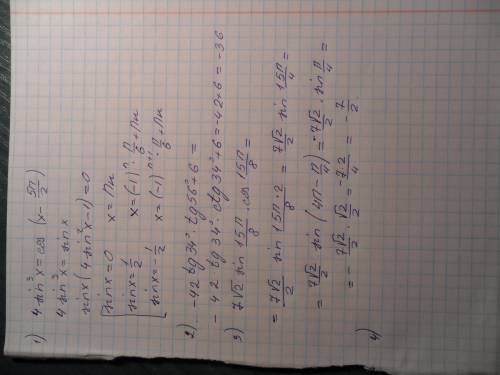 1) 4 sin³x = cos (x - 5π/2)
4 sin³x = sin x
sin x (4 sin²x - 1) = 0
[ sin x = 0   x = πn
sin x = 1/2   x = (-1)ⁿ · π/6 + πn
sin x = -1/2   x = (-1)ⁿ⁺¹ · π/6 + πn
2) -42 tg 34° · tg 56° + 6 =
- 42 tg 34° · ctg 34° + 6 = -42 + 6 = -36
3) 7√2 sin 15π/8 · cos 15π/8 =
= 7√2/2 sin 15π·2/8 = 7√2/2 sin 15π/4 =
= 7√2/2 · sin (4π - π/4) = -7√2/2 · sin π/4 =
= - 7√2/2 · √2/2 = -7·2/4 = -7/2
4)